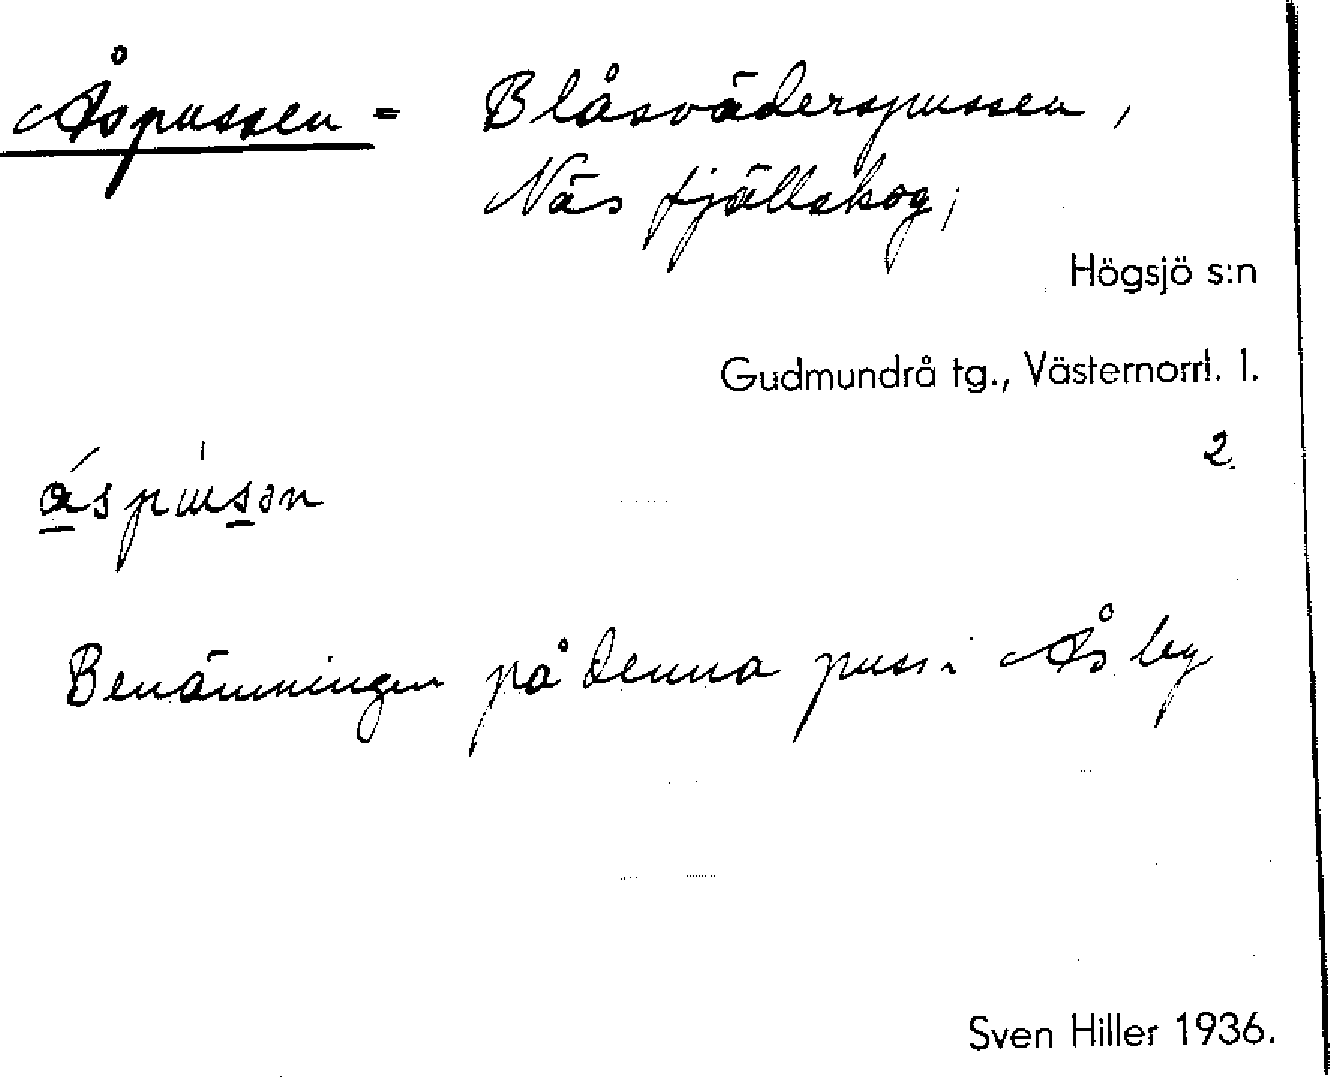 Åspussen = Blåsväderspussen,
Näs fjällskog,
Högsjö s:n
Gudmundrå tg., Västernorrl. l.
2.
Benämningen på denna puss i Ås by
Sven Hiller 1936.